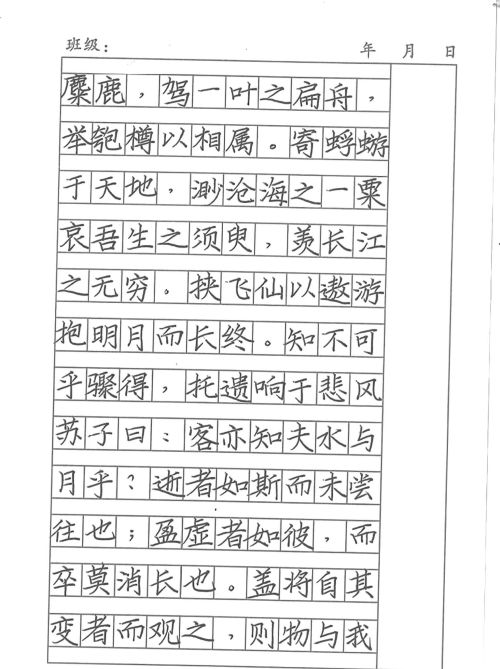 班级： 年 月 日
麋鹿，驾一叶之扁舟，
举匏樽以相属。寄蜉蝣
于天地，渺沧海之一粟
哀吾生之须臾，羡长江
之无穷。挟飞仙以遨游
抱明月而长终。知不可
乎骤得，托遗响于悲风
苏子曰：客亦知夫水与
月乎？逝者如斯而未尝
往也；盈虚者如彼，而
卒莫消长也。盖将自其
变者而观之，则物与我